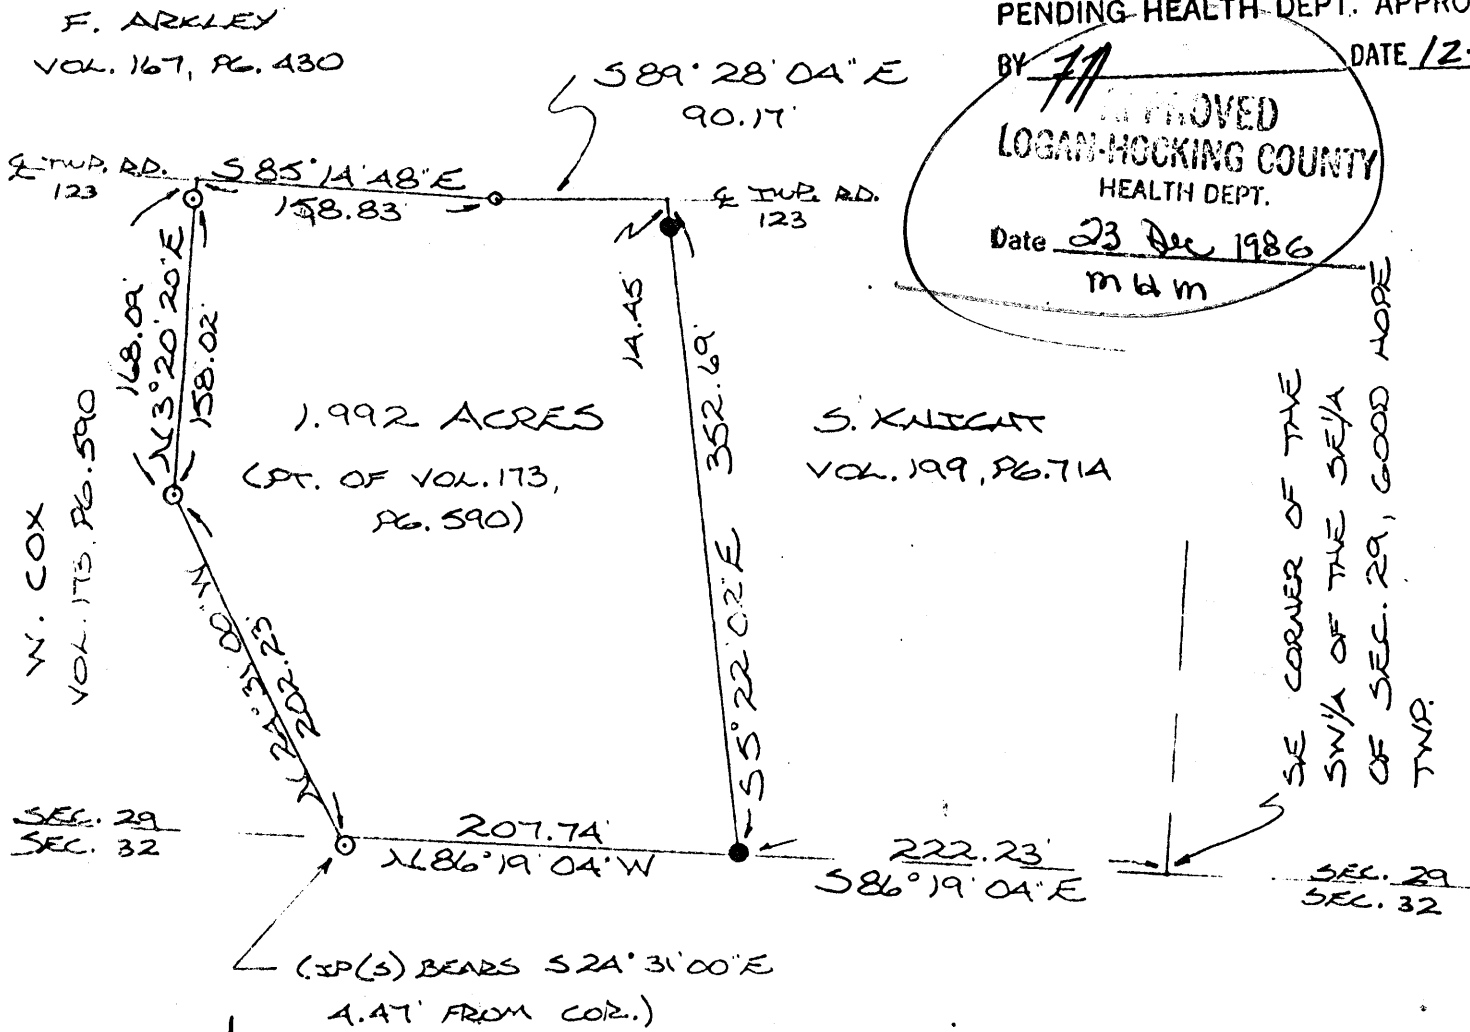 F. ARKLEY
VOL. 167, PG. 430
S 89° 28' 04" E
90.17'
PENDING HEALTH DEPT.
BY
DATE 12
APPROVED
LOGAN-HOCKING COUNTY
HEALTH DEPT.
Date 23 Dec 1986
MWM
℄ TWP. RD.
123
S 85° 14' 48" E
158.83'
℄ TWP. RD.
123
168.09'
N 3° 20' 20" E
158.02'
14.45'
S 5° 22' 02" E 352.69'
1.992 ACRES
(PT. OF VOL. 173,
PG. 590)
S. KNIGHT
VOL. 199, PG. 714
W. COX
VOL. 173, PG. 590
N 24° 31' 00" W
202.23'
SE CORNER OF THE
SW 1/4 OF THE SE 1/4
OF SEC. 29, GOOD HOPE
TWP.
SEC. 29
SEC. 32
207.74'
N 86° 19' 04" W
222.23'
S 86° 19' 04" E
SEC. 29
SEC. 32
(IP(S) BEARS S 24° 31' 00" E
4.47' FROM COR.)